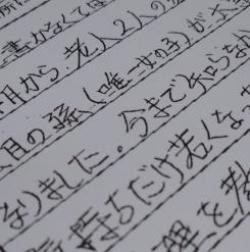 書かなくては
月から 老人2人の
月の孫(唯一女の子)が
なりました。今まで知らなか
時だけ若くな
理を教